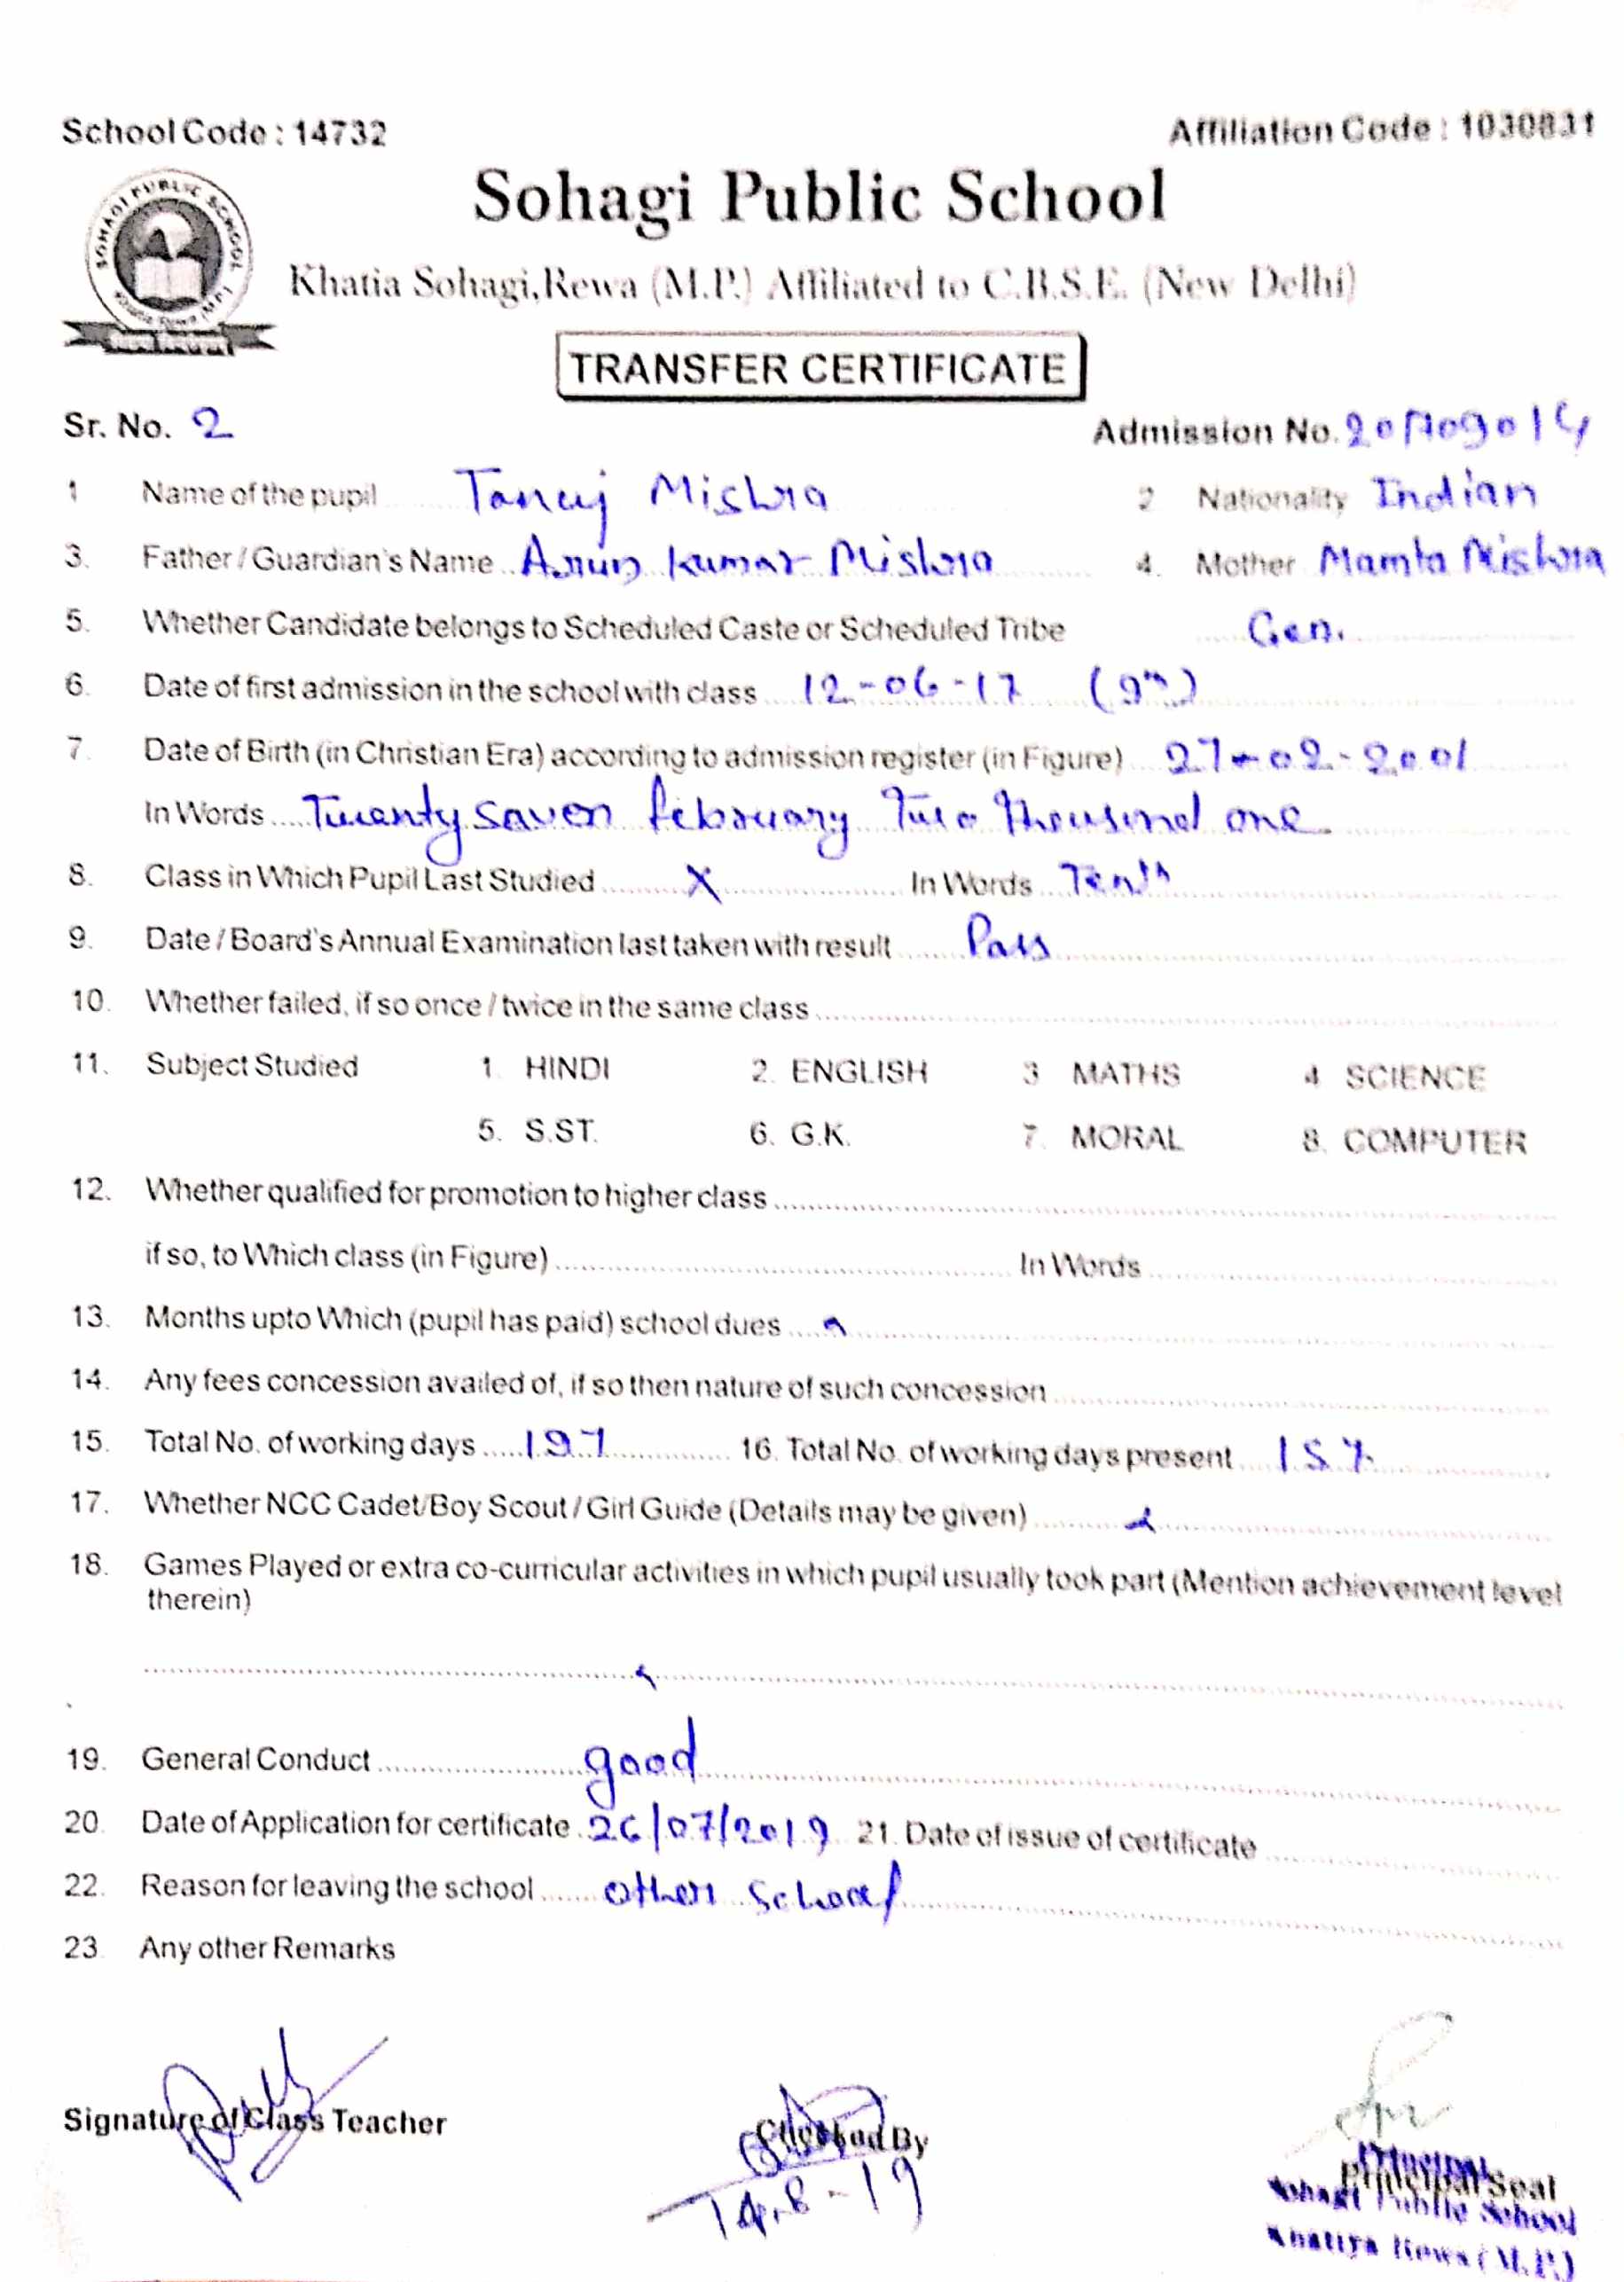 School Code : 14732 Affiliation Code : 1030831
SOHAGI PUBLIC SCHOOL
Sohagi Public School
Khatia Sohagi, Rewa (M.P.) Affiliated to C.B.S.E. (New Delhi)
TRANSFER CERTIFICATE
Sr. No. 2 Admission No.
1 Name of the pupil Tanuj Mishra 2 Nationality Indian
3. Father / Guardian's Name Arun Kumar Mishra 4. Mother Mamta Mishra
5. Whether Candidate belongs to Scheduled Caste or Scheduled Tribe Gen.
6. Date of first admission in the school with class 12-06-17 (9th)
7. Date of Birth (in Christian Era) according to admission register (in Figure) 27-02-2001
In Words Twenty saven february Two thousand one
8. Class in Which Pupil Last Studied X In Words Tenth
9. Date / Board's Annual Examination last taken with result Pass
10. Whether failed, if so once / twice in the same class
11. Subject Studied 1. HINDI 2. ENGLISH 3 MATHS 4 SCIENCE
5. S.ST. 6. G.K. 7. MORAL 8. COMPUTER
12. Whether qualified for promotion to higher class
if so, to Which class (in Figure) In Words
13. Months upto Which (pupil has paid) school dues
14. Any fees concession availed of, if so then nature of such concession
15. Total No. of working days 197 16. Total No. of working days present 157
17. Whether NCC Cadet/Boy Scout / Girl Guide (Details may be given)
18. Games Played or extra co-curricular activities in which pupil usually took part (Mention achievement level
therein)
19. General Conduct good
20. Date of Application for certificate 26/07/2019 21. Date of issue of certificate
22. Reason for leaving the school other school
23. Any other Remarks
Signature of Class Teacher Checked By Principal Seal
Principal
Sohagi Public School
Khatiya Rewa (M.P.)